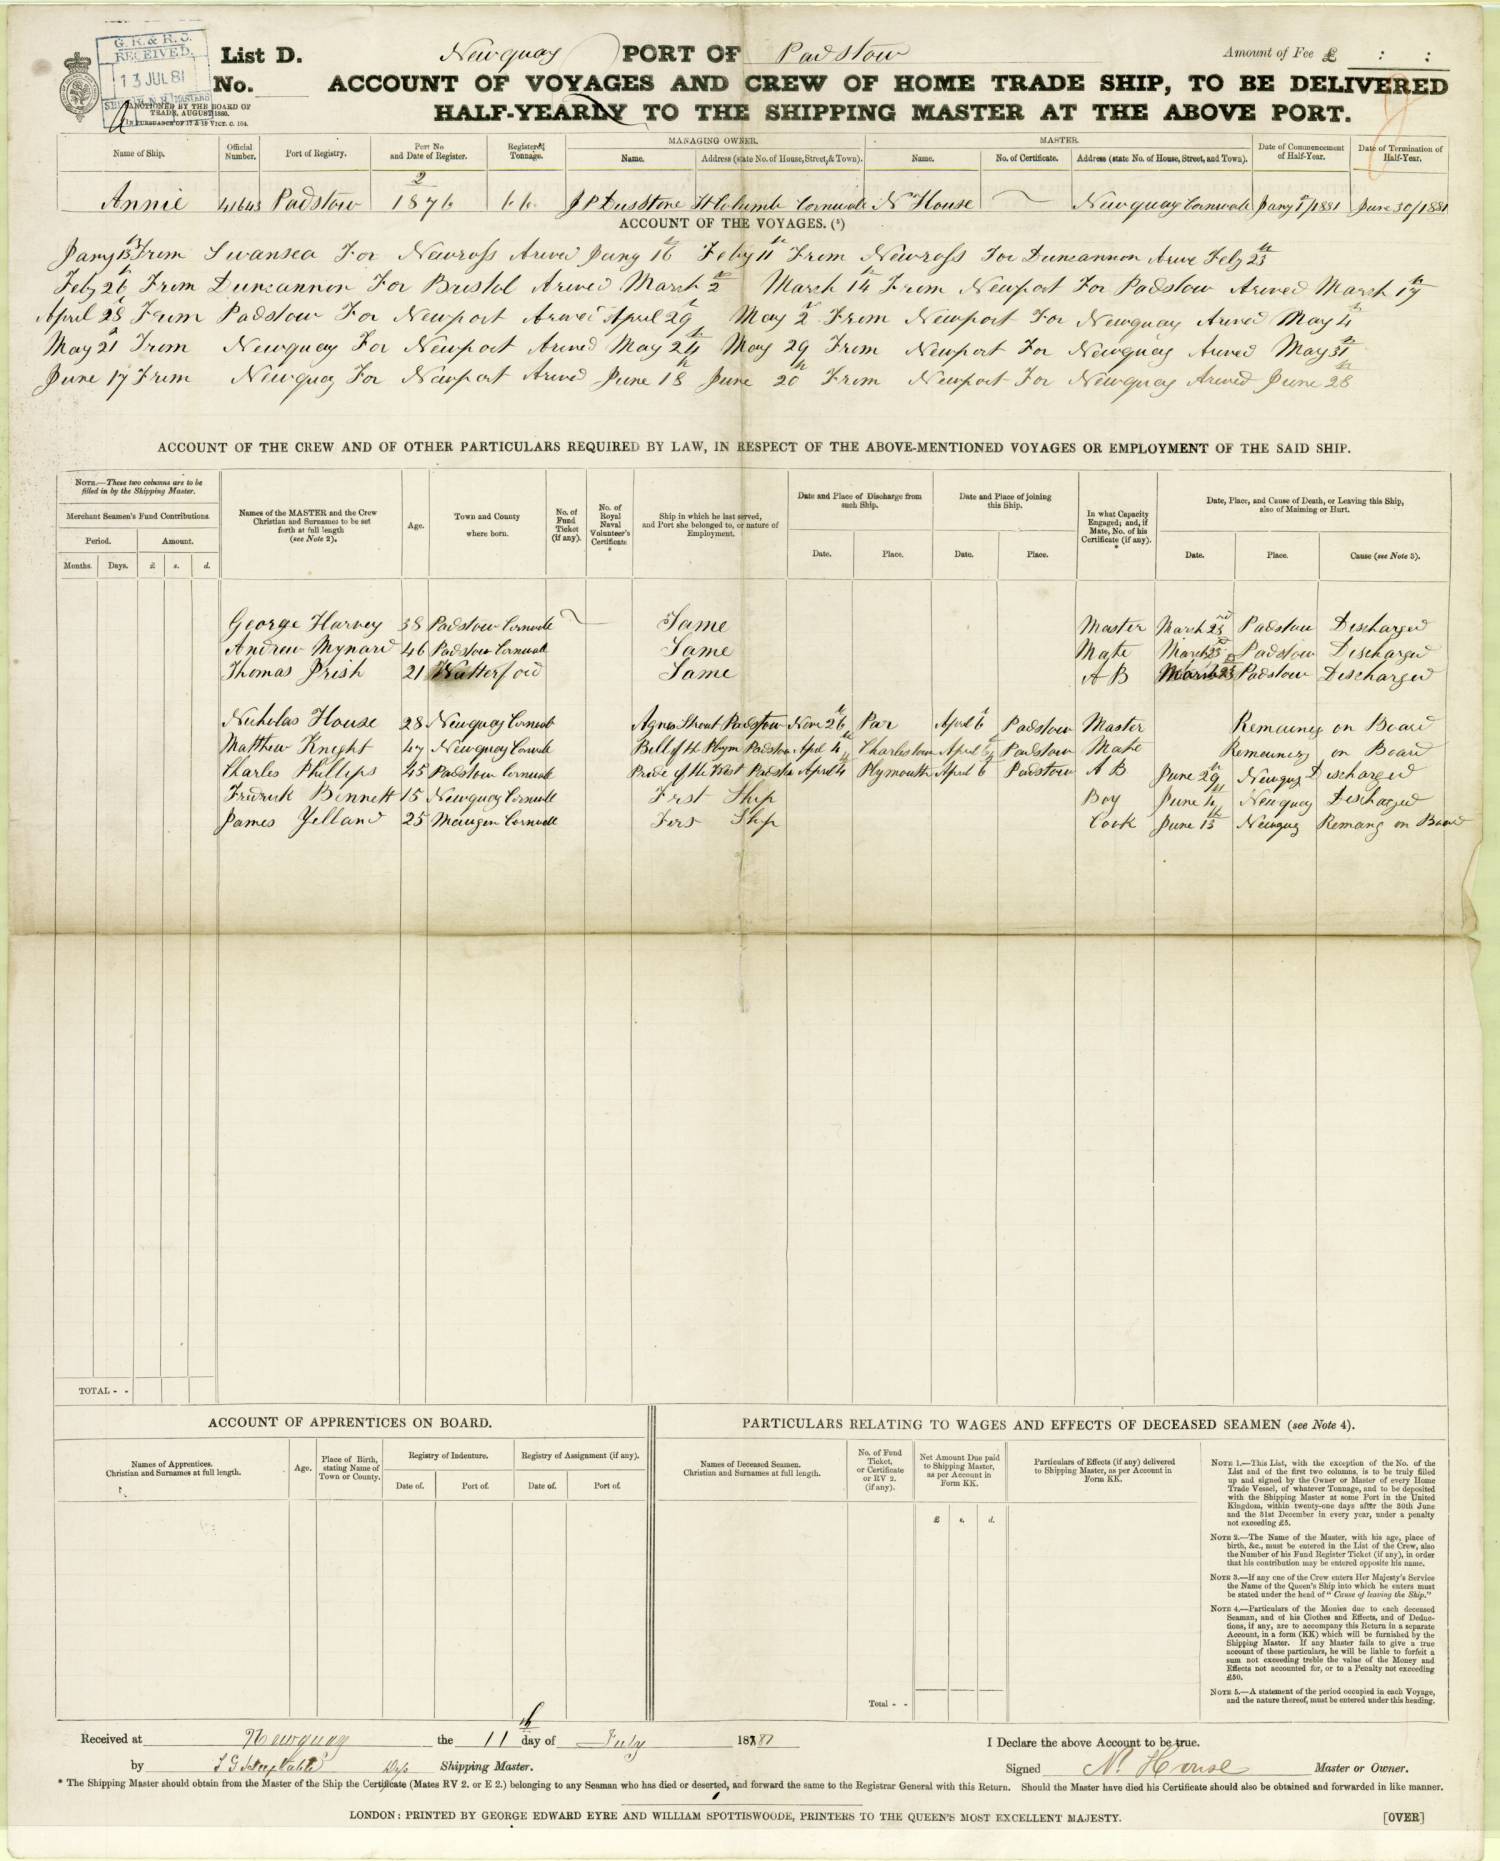 G. R. & R. S.
RECEIVED,
13 JUL 81
List D. Newquay PORT OF Padstow Amount of Fee £ : :
No. ACCOUNT OF VOYAGES AND CREW OF HOME TRADE SHIP, TO BE DELIVERED
HALF-YEARLY TO THE SHIPPING MASTER AT THE ABOVE PORT.
SANCTIONED BY THE BOARD OF
TRADE, AUGUST 1880.
IN PURSUANCE OF 17 & 18 VICT. C. 104.
Name of Ship. Official Number. Port of Registry. Port No and Date of Register. Registered Tonnage. MANAGING OWNER. Name. Address (state No. of House, Street, & Town). MASTER. Name. No. of Certificate. Address (state No. of House, Street, and Town). Date of Commencement of Half-Year. Date of Termination of Half-Year.
Annie 41643 Padstow 2/1876 66 J P Dusstone St Columb Cornwall N House Newquay Cornwall Jany 1st/1881 June 30/1881
ACCOUNT OF THE VOYAGES. (5)
Jany 13th From Swansea For Newross Arived Jany 16th Feby 11th From Newross For Duncannon Arive Feby 25th
Feby 26th From Duncannon For Bristol Arived March 2nd March 14th From Newport For Padstow Arived March 17th
April 28th From Padstow For Newport Arived April 29th May 2nd From Newport For Newquay Arived May 4th
May 21st From Newquay For Newport Arived May 24th May 29th From Newport For Newquay Arived May 31st
June 17 From Newquay For Newport Arived June 18th June 20th From Newport For Newquay Arived June 28th
ACCOUNT OF THE CREW AND OF OTHER PARTICULARS REQUIRED BY LAW, IN RESPECT OF THE ABOVE-MENTIONED VOYAGES OR EMPLOYMENT OF THE SAID SHIP.
NOTE.—These two columns are to be filled in by the Shipping Master.
Merchant Seamen's Fund Contributions.
Period. Amount.
Months. Days. £ s. d.
Names of the MASTER and the Crew Christian and Surnames to be set forth at full length (see Note 2).
Age.
Town and County where born.
No. of Fund Ticket (if any).
No. of Royal Naval Volunteer's Certificate *
Ship in which he last served, and Port she belonged to, or nature of Employment.
Date and Place of Discharge from such Ship. Date. Place.
Date and Place of joining this Ship. Date. Place.
In what Capacity Engaged; and, if Mate, No. of his Certificate (if any). *
Date, Place, and Cause of Death, or Leaving this Ship, also of Maiming or Hurt. Date. Place. Cause (see Note 3).
George Harvey 38 Padstow Cornwall Same Master March 23rd Padstow Discharged
Andrew Mynard 46 Padstow Cornwall Same Mate March 23rd Padstow Discharged
Thomas Prish 21 Watterford Same A B March 23 Padstow Discharged
Nicholas House 28 Newquay Cornwall Agnes Padstow Nove 26th Par April 6th Padstow Master Remaining on Board
Matthew Knight 47 Newquay Cornwall Bell of the Plym Padstow April 4th Charlestown April 6th Padstow Mate Remaining on Board
Charles Phillips 45 Padstow Cornwall Pride of the West Padstow April 4th Plymouth April 6th Padstow A B June 29th Newquay Discharged
Fredrick Bennett 15 Newquay Cornwall First Ship Boy June 4th Newquay Discharged
James Yelland 25 Maugan Cornwall Firs Ship Cook June 13th Newquay Remang on Board
TOTAL - -
ACCOUNT OF APPRENTICES ON BOARD.
Names of Apprentices. Christian and Surnames at full length. Age. Place of Birth, stating Name of Town or County. Registry of Indenture. Date of. Port of. Registry of Assignment (if any). Date of. Port of.
PARTICULARS RELATING TO WAGES AND EFFECTS OF DECEASED SEAMEN (see Note 4).
Names of Deceased Seamen. Christian and Surnames at full length. No. of Fund Ticket, or Certificate or RV 2. (if any). Net Amount Due paid to Shipping Master, as per Account in Form KK. £ s. d. Particulars of Effects (if any) delivered to Shipping Master, as per Account in Form KK.
Total - -
NOTE 1.—This List, with the exception of the No. of the
List and of the first two columns, is to be truly filled
up and signed by the Owner or Master of every Home
Trade Vessel, of whatever Tonnage, and to be deposited
with the Shipping Master at some Port in the United
Kingdom, within twenty-one days after the 30th June
and the 31st December in every year, under a penalty
not exceeding £5.
NOTE 2.—The Name of the Master, with his age, place of
birth, &c., must be entered in the List of the Crew, also
the Number of his Fund Register Ticket (if any), in order
that his contribution may be entered opposite his name.
NOTE 3.—If any one of the Crew enters Her Majesty's Service
the Name of the Queen's Ship into which he enters must
be stated under the head of "Cause of leaving the Ship."
NOTE 4.—Particulars of the Monies due to each deceased
Seaman, and of his Clothes and Effects, and of Deduc-
tions, if any, are to accompany this Return in a separate
Account, in a form (KK) which will be furnished by the
Shipping Master. If any Master fails to give a true
account of these particulars, he will be liable to forfeit a
sum not exceeding treble the value of the Money and
Effects not accounted for, or to a Penalty not exceeding
£50.
NOTE 5.—A statement of the period occupied in each Voyage,
and the nature thereof, must be entered under this heading.
Received at Newquay the 11th day of July 1881 I Declare the above Account to be true.
by Shipping Master. Signed N. House Master or Owner.
* The Shipping Master should obtain from the Master of the Ship the Certificate (Mates RV 2. or E 2.) belonging to any Seaman who has died or deserted, and forward the same to the Registrar General with this Return. Should the Master have died his Certificate should also be obtained and forwarded in like manner.
LONDON: PRINTED BY GEORGE EDWARD EYRE AND WILLIAM SPOTTISWOODE, PRINTERS TO THE QUEEN'S MOST EXCELLENT MAJESTY. [OVER]